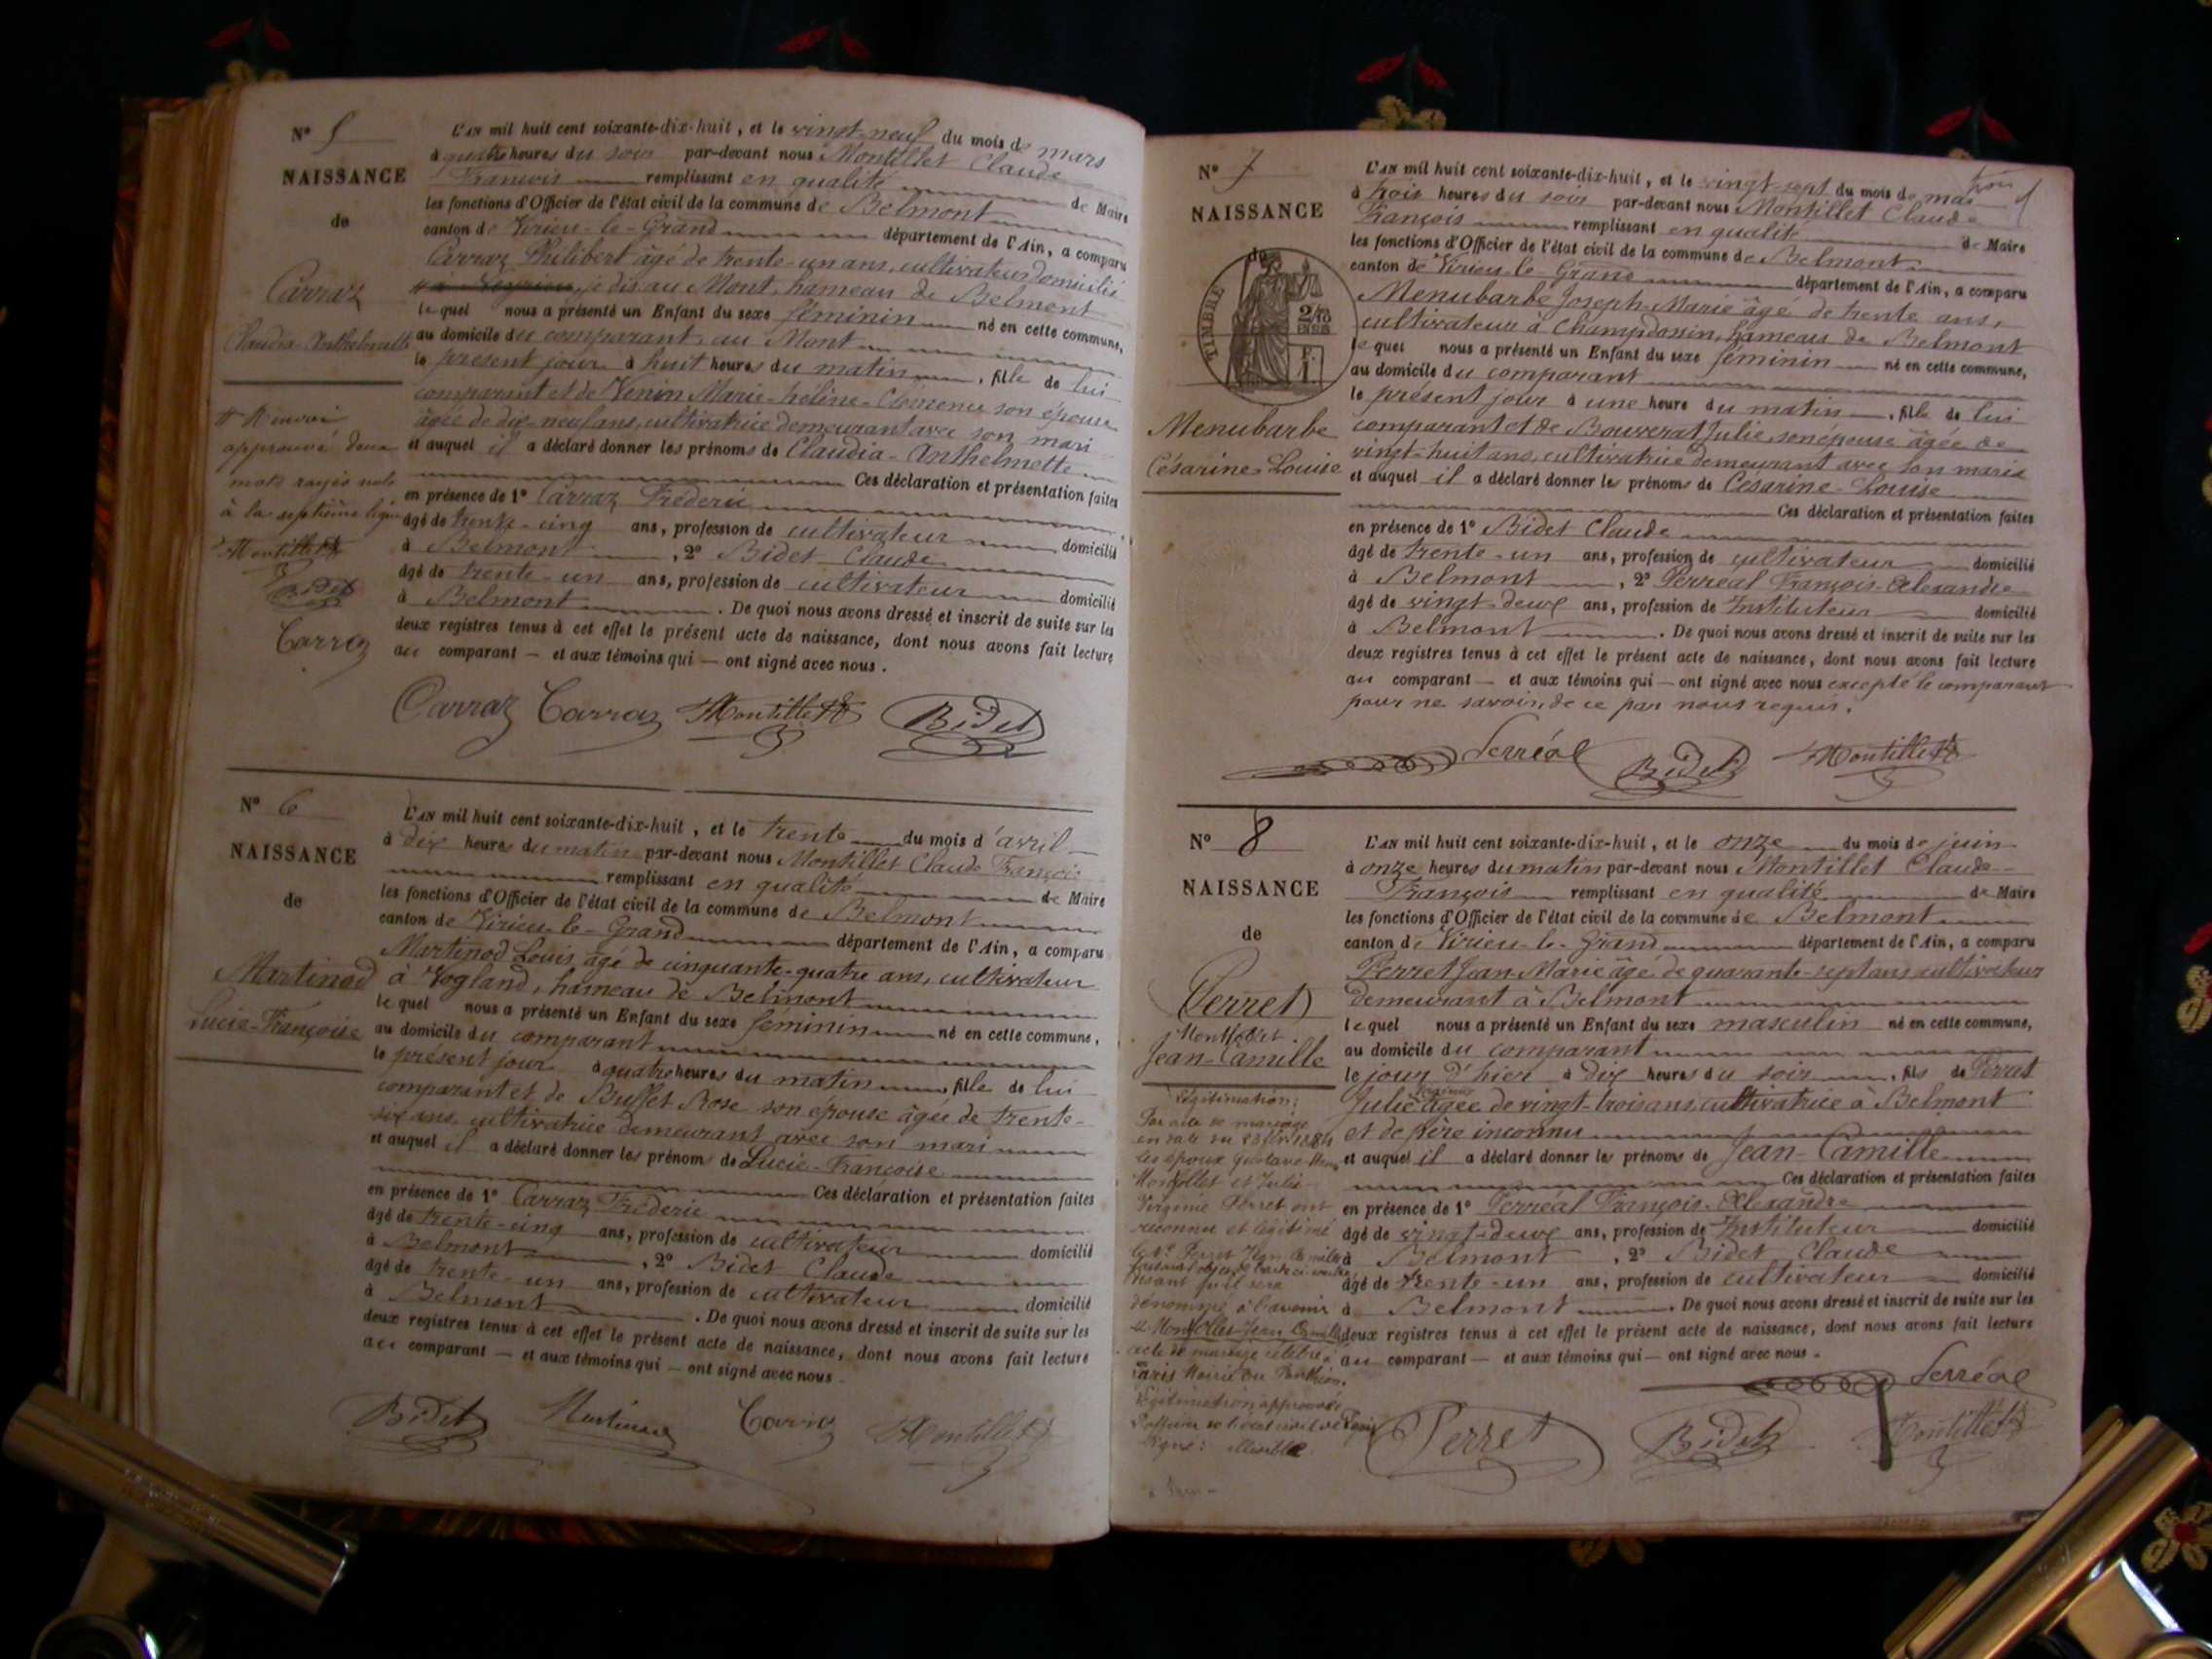 N° 5
NAISSANCE
de
Carraz
Claudia-Anthelmette
Renvoi
approuvé deux
mots rayés nuls
à la septième ligne
Montillet
Bidet
Carraz
L'AN mil huit cent soixante-dix-huit, et le vingt-neuf du mois de mars
à quatre heures du soir par-devant nous Montillet Claude
François remplissant en qualité de Maire
les fonctions d'Officier de l'état civil de la commune de Belmont
canton de Virieu-le-Grand département de l'Ain, a comparu
Carraz Philibert âgé de trente-un ans, cultivateur domicilié
je dis au Mont, hameau de Belmont
lequel nous a présenté un Enfant du sexe féminin né en cette commune,
au domicile du comparant au Mont
le présent jour à huit heures du matin, fille de lui
comparant et de Venin Marie-hélène-Clémence son épouse
âgée de dix-neuf ans, cultivatrice demeurant avec son mari
et auquel il a déclaré donner les prénoms de Claudia-Anthelmette
Ces déclaration et présentation faites
en présence de 1° Carraz Frédéric
âgé de trente-cinq ans, profession de cultivateur domicilié
à Belmont, 2° Bidet Claude
âgé de trente-un ans, profession de cultivateur domicilié
à Belmont. De quoi nous avons dressé et inscrit de suite sur les
deux registres tenus à cet effet le présent acte de naissance, dont nous avons fait lecture
au comparant — et aux témoins qui — ont signé avec nous.
Carraz Carraz Montillet Bidet
N° 6
NAISSANCE
de
Martinod
Lucie-Françoise
L'AN mil huit cent soixante-dix-huit, et le trente du mois d'avril
à dix heures du matin par-devant nous Montillet Claude François
remplissant en qualité de Maire
les fonctions d'Officier de l'état civil de la commune de Belmont
canton de Virieu-le-Grand département de l'Ain, a comparu
Martinod Louis âgé de cinquante-quatre ans, cultivateur
à Vogland, hameau de Belmont
lequel nous a présenté un Enfant du sexe féminin né en cette commune,
au domicile du comparant
le présent jour à quatre heures du matin, fille de lui
comparant et de Buffet Rose son épouse âgée de trente-
six ans, cultivatrice demeurant avec son mari
et auquel il a déclaré donner les prénoms de Lucie-Françoise
Ces déclaration et présentation faites
en présence de 1° Carraz Frédéric
âgé de trente-cinq ans, profession de cultivateur domicilié
à Belmont, 2° Bidet Claude
âgé de trente-un ans, profession de cultivateur domicilié
à Belmont. De quoi nous avons dressé et inscrit de suite sur les
deux registres tenus à cet effet le présent acte de naissance, dont nous avons fait lecture
au comparant — et aux témoins qui — ont signé avec nous.
Bidet Martinod Carraz Montillet
N° 7
NAISSANCE
de
TIMBRE
2/10
EN SUS
F.
1.
Menubarbe
Césarine-Louise
L'AN mil huit cent soixante-dix-huit, et le vingt-sept du mois de mai
à trois heures du soir par-devant nous Montillet Claude
François remplissant en qualité de Maire
les fonctions d'Officier de l'état civil de la commune de Belmont
canton de Virieu-le-Grand département de l'Ain, a comparu
Menubarbe Joseph-Marie âgé de trente ans,
cultivateur à Champdossin, hameau de Belmont
lequel nous a présenté un Enfant du sexe féminin né en cette commune,
au domicile du comparant
le présent jour à une heure du matin, fille de lui
comparant et de Bouverat Julie, son épouse âgée de
vingt-huit ans, cultivatrice demeurant avec son mari
et auquel il a déclaré donner les prénoms de Césarine-Louise
Ces déclaration et présentation faites
en présence de 1° Bidet Claude
âgé de trente-un ans, profession de cultivateur domicilié
à Belmont, 2° Perréal François-Alexandre
âgé de vingt-deux ans, profession de Instituteur domicilié
à Belmont. De quoi nous avons dressé et inscrit de suite sur les
deux registres tenus à cet effet le présent acte de naissance, dont nous avons fait lecture
au comparant — et aux témoins qui — ont signé avec nous excepté le comparant
pour ne savoir, de ce par nous requis.
Perréal Bidet Montillet
N° 8
NAISSANCE
de
Perret
Jean-Camille
Légitimation:
Par acte de mariage
en date du
les époux Gustave
Monfollet et Julie
Virginie Perret ont
reconnu et légitimé
Perret Jean Camille
faisant l'objet de l'acte ci-contre
disant qu'il sera
dénommé à l'avenir
Monfollet Jean Camille
acte de mariage célébré à
Paris Mairie du Panthéon.
Légitimation approuvée
L'officier de l'état civil de Paris
Signé: illisible
L'AN mil huit cent soixante-dix-huit, et le onze du mois de juin
à onze heures du matin par-devant nous Montillet Claude-
François remplissant en qualité de Maire
les fonctions d'Officier de l'état civil de la commune de Belmont
canton de Virieu-le-Grand département de l'Ain, a comparu
Perret Jean-Marie âgé de quarante-sept ans cultivateur
demeurant à Belmont
lequel nous a présenté un Enfant du sexe masculin né en cette commune,
au domicile du comparant
le jour d'hier à dix heures du soir, fils de Perret
Julie Virginie âgée de vingt-trois ans, cultivatrice à Belmont
et de père inconnu
et auquel il a déclaré donner les prénoms de Jean-Camille
Ces déclaration et présentation faites
en présence de 1° Perréal François-Alexandre
âgé de vingt-deux ans, profession de Instituteur domicilié
à Belmont, 2° Bidet Claude
âgé de trente-un ans, profession de cultivateur domicilié
à Belmont. De quoi nous avons dressé et inscrit de suite sur les
deux registres tenus à cet effet le présent acte de naissance, dont nous avons fait lecture
au comparant — et aux témoins qui — ont signé avec nous.
Perréal
Perret Bidet Montillet